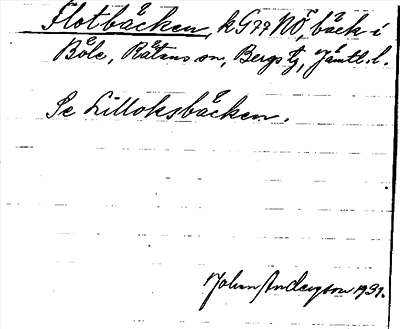 Flotbäcken, kG77NÖ, bäck i
Böle, Rätans sn, Bergs tg, Jämtl. l.
Se Lilloksbäcken.
Johan Anderson 1931.